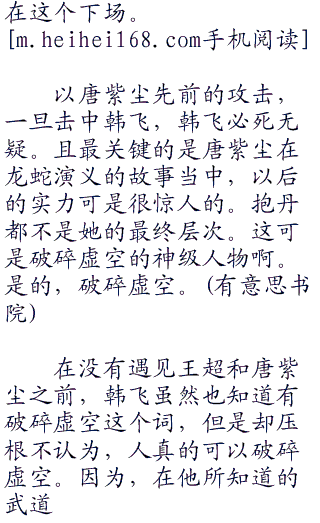 在这个下场。
[m.heihei168.com手机阅读]
以唐紫尘先前的攻击，
一旦击中韩飞，韩飞必死无
疑。且最关键的是唐紫尘在
龙蛇演义的故事当中，以后
的实力可是很惊人的。抱丹
都不是她的最终层次。这可
是破碎虚空的神级人物啊。
是的，破碎虚空。(有意思书
院)
在没有遇见王超和唐紫
尘之前，韩飞虽然也知道有
破碎虚空这个词，但是却压
根不认为，人真的可以破碎
虚空。因为，在他所知道的
武道